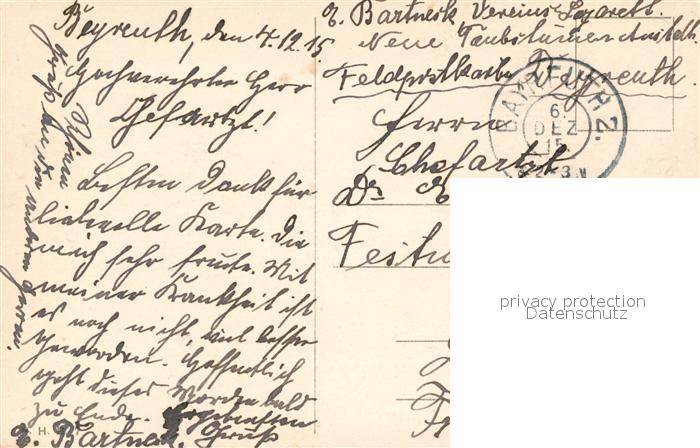 Beyreuth, den 4.12.15.
Hochverehrter Herr
Chefartzt!
Besten Dank für
liebevolle Karte. Die
mich sehr freute. Mit
meiner Krankheit ist
es noch nicht, viel besser
geworden. Hoffentlich
geht dieses Morden bald
zu Ende. Ergebensten
Gruß
Bartnek.
Gruß an die anderen Herren.
Bartnek, Vereins Lazarett.
Neue Taubstumenanstalt.
Feldpostkarte Beyreuth.
BAYREUTH 2.
6.
DEZ
15
Herrn
Chefartzt
Dr.
Festu
privacy protection
Datenschutz